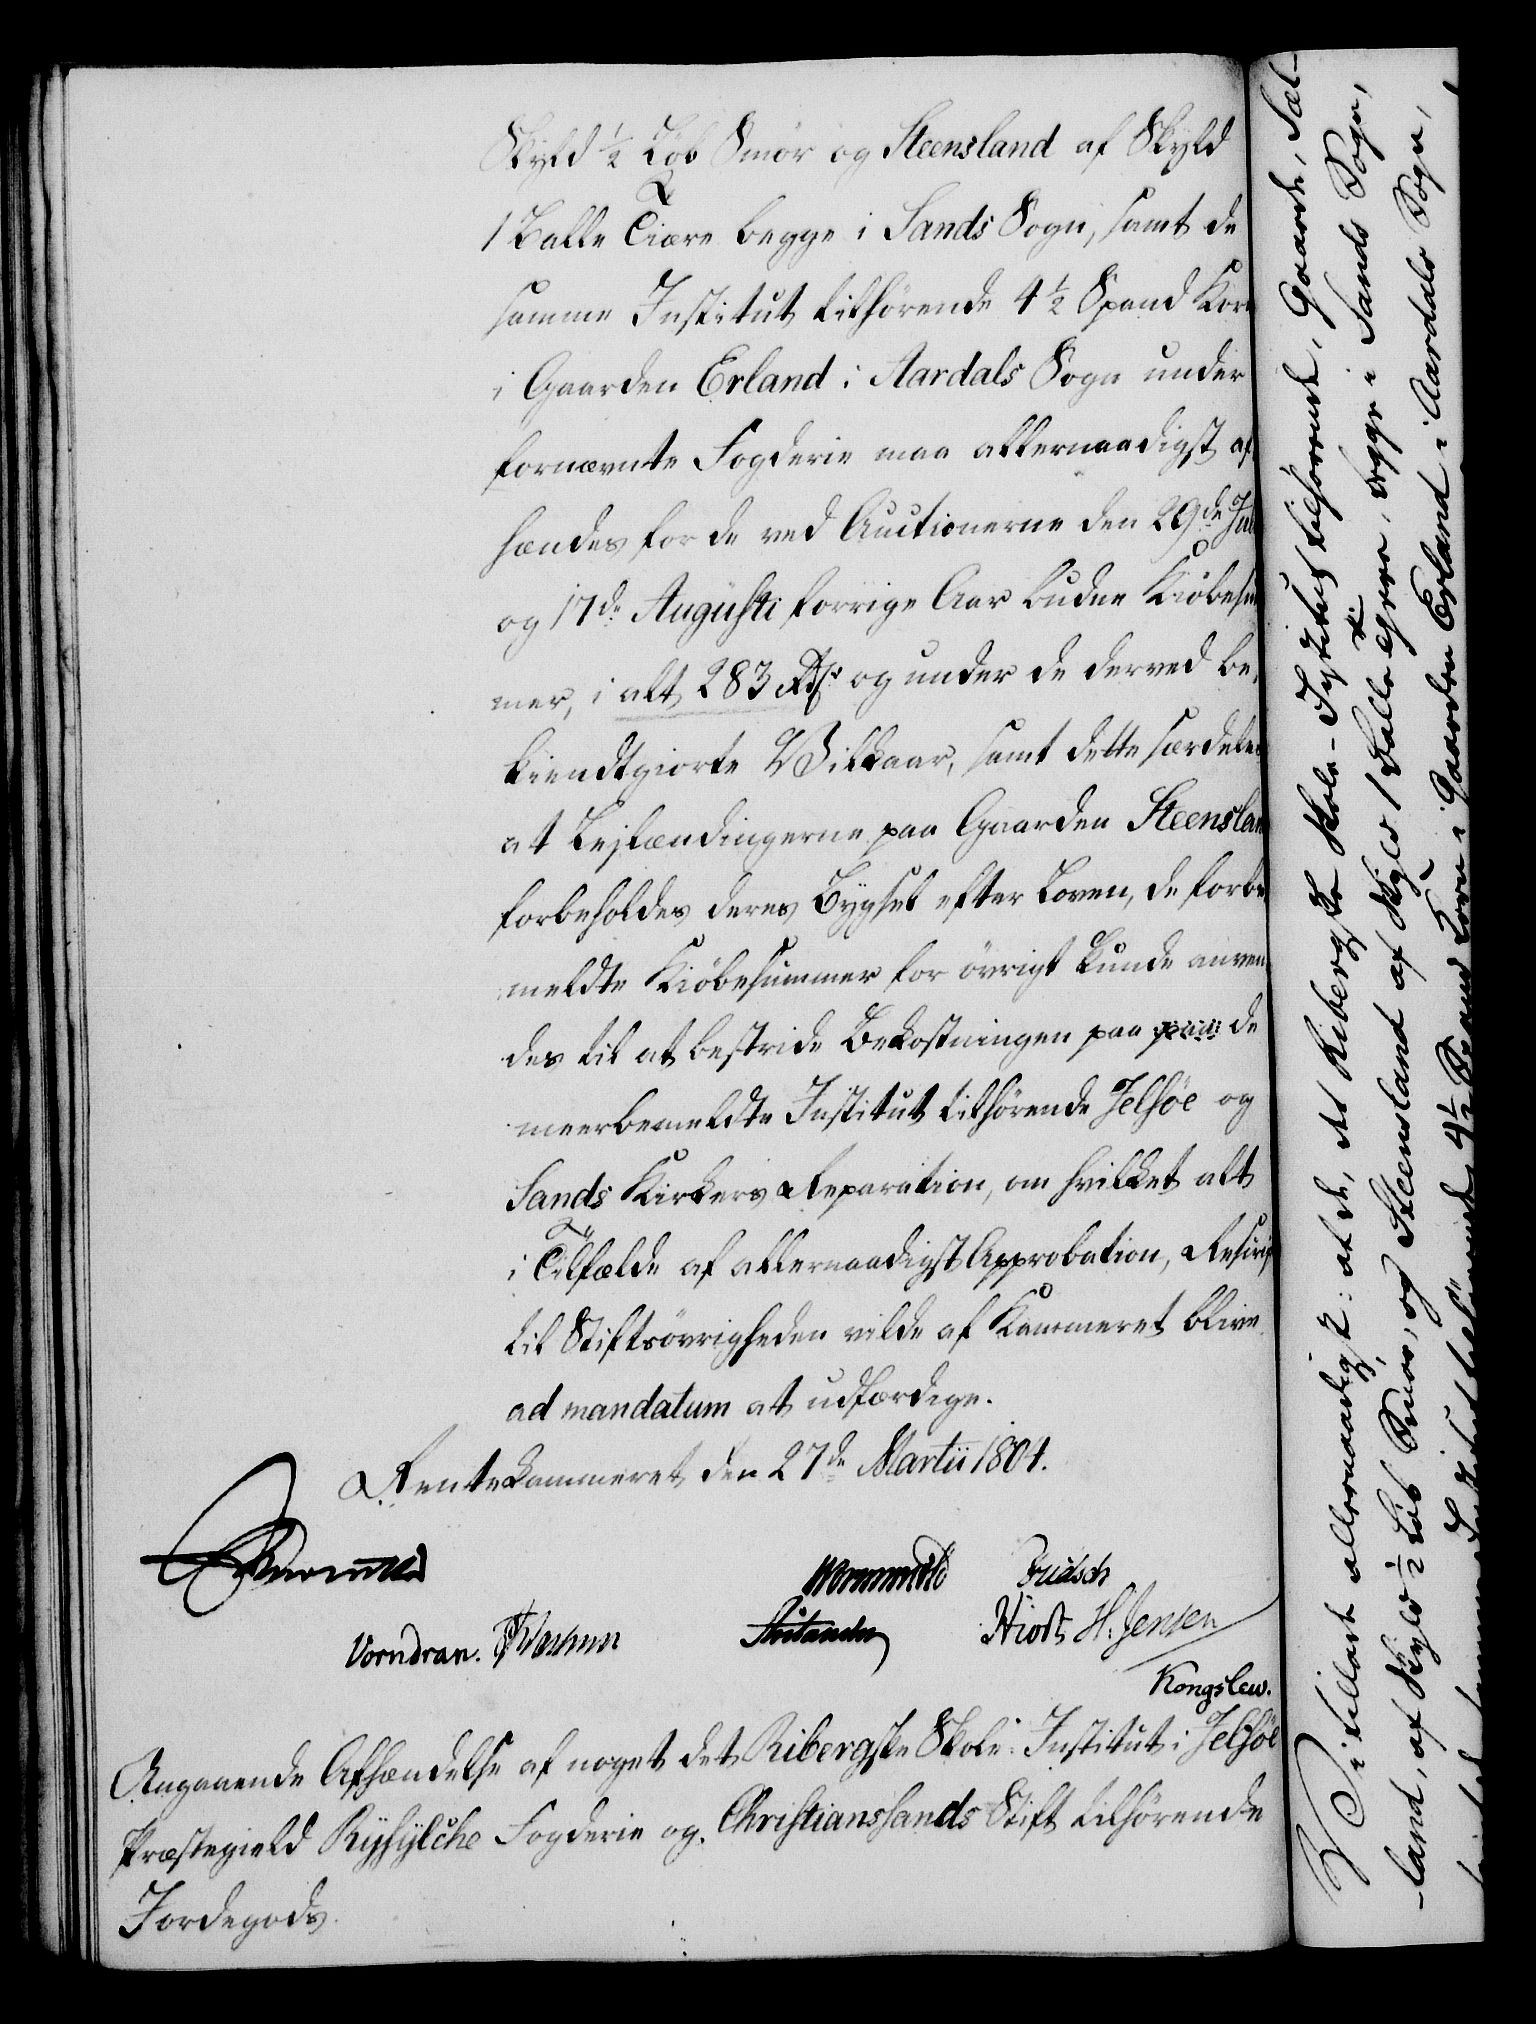 Skyld 1/2 Løb Smør og Steensland af Skyld
1 Balle Tiære begge i Sands Sogn, samt de
samme Institut tilhørende 4 1/2 Spand Korn
i Gaarden Erland i Aardals Sogn under
fornævnte Fogderie maa allernaadigst af
hændes for de ved Auctionerne den 29de Jul
og 17de Augusti forrige Aar budne Kiøbesum
mer, i alt 283 Rdr og under de derved be-
kiendtgiorte Vilkaar, samt dette særdeles
at Lejlændingerne paa Gaarden Steensland
forbeholdes deres Bygsel efter Loven, de forbe
meldte Kiøbesummer for øvrigt kunde anven
des til at bestride Bekostningen paa paa de
meerbemeldte Institut tilhørende Jelsøe og
Sands Kirkers Reparation, om hvilket alt
i Tilfælde af allernaadigst Approbation, Rescrip
til Stiftsøvrigheden vilde af Kammeret blive
ad mandatum at udfærdige.
Rentekammeret den 27de Martii 1804.
Wormskiold Fridsch
Vorndran. Hiort H. Jensen
Kongslew.
Angaaende Afhændelse af noget det Ribergske Skole-Institut i Jelsøe
Præstegield Ryfylche Fogderie og Christianssands Stift tilhørende
Jordegods.
Vi tillade allernaadigst: at de, det Ribergske Skole-Institut tilhørende, Gaarde, Sæl-
-land, af Skyld 1/2 Løb Smør, og Steensland af Skyld 1 Balle Tiære, begge i Sands Sogn,
samme Institut tilhørende 4 1/2 Spand Korn i Gaarden Erland i Aardals Sogn,